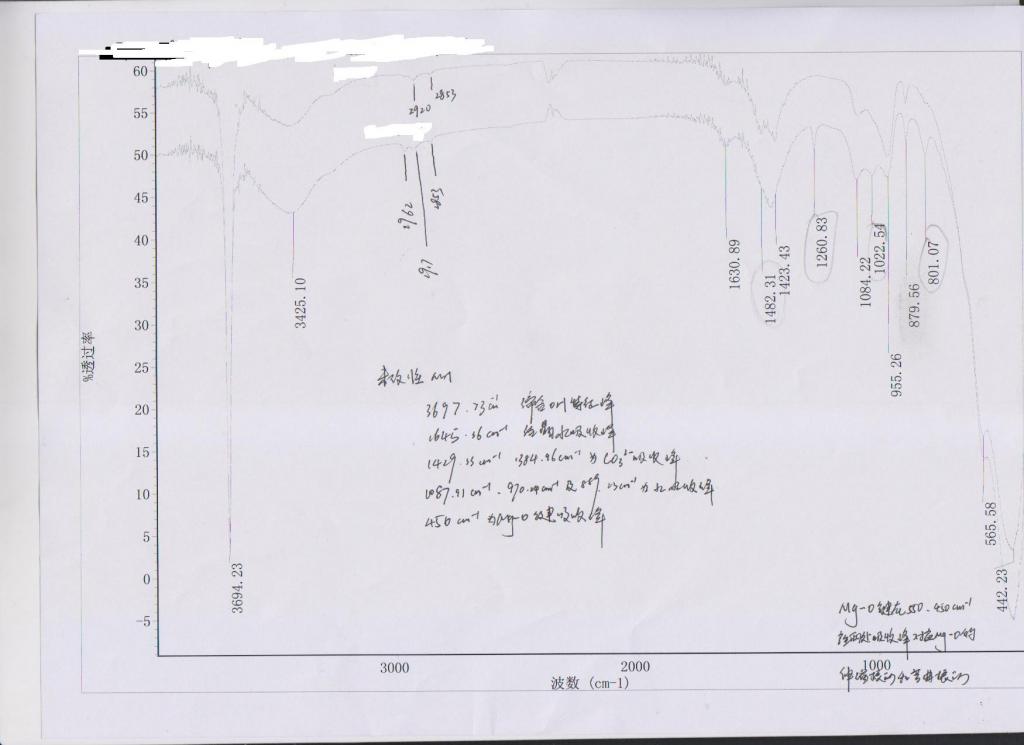 60
55
50
45
40
35
30
25
20
15
10
5
0
-5
%透过率
3000
2000
1000
波数 (cm-1)
3694.23
3425.10
2920
2853
2962
2853
1630.89
1482.31
1423.43
1260.83
1084.22
1022.54
955.26
879.56
801.07
565.58
442.23
未改性 MH
3697.73cm⁻¹ 缔合OH特征峰
1645.36cm⁻¹ 结晶水吸收峰
1429.33cm⁻¹ 1384.96cm⁻¹ 为CO₃²⁻吸收峰
1087.91cm⁻¹、970.29cm⁻¹及889.23cm⁻¹为 吸收峰
450cm⁻¹为Mg-O 吸收峰
Mg-O键在550-450cm⁻¹
吸收峰对应Mg-O的
伸缩振动和弯曲振动